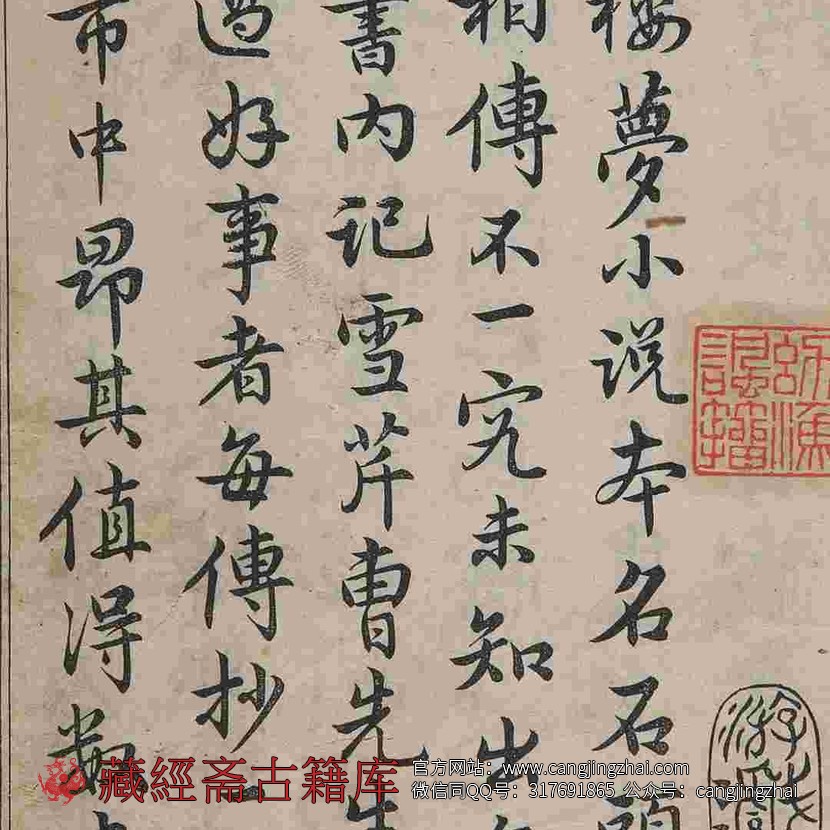 楼夢小説本名石頭
相傳不一究未知出
書内記雪芹曹先生
過好事者每傳抄一
市中昂其值得數
藏經斋古籍库
官方网站：www.cangjingzhai.com
微信同QQ号：317691865 公众号：cangjingzhai